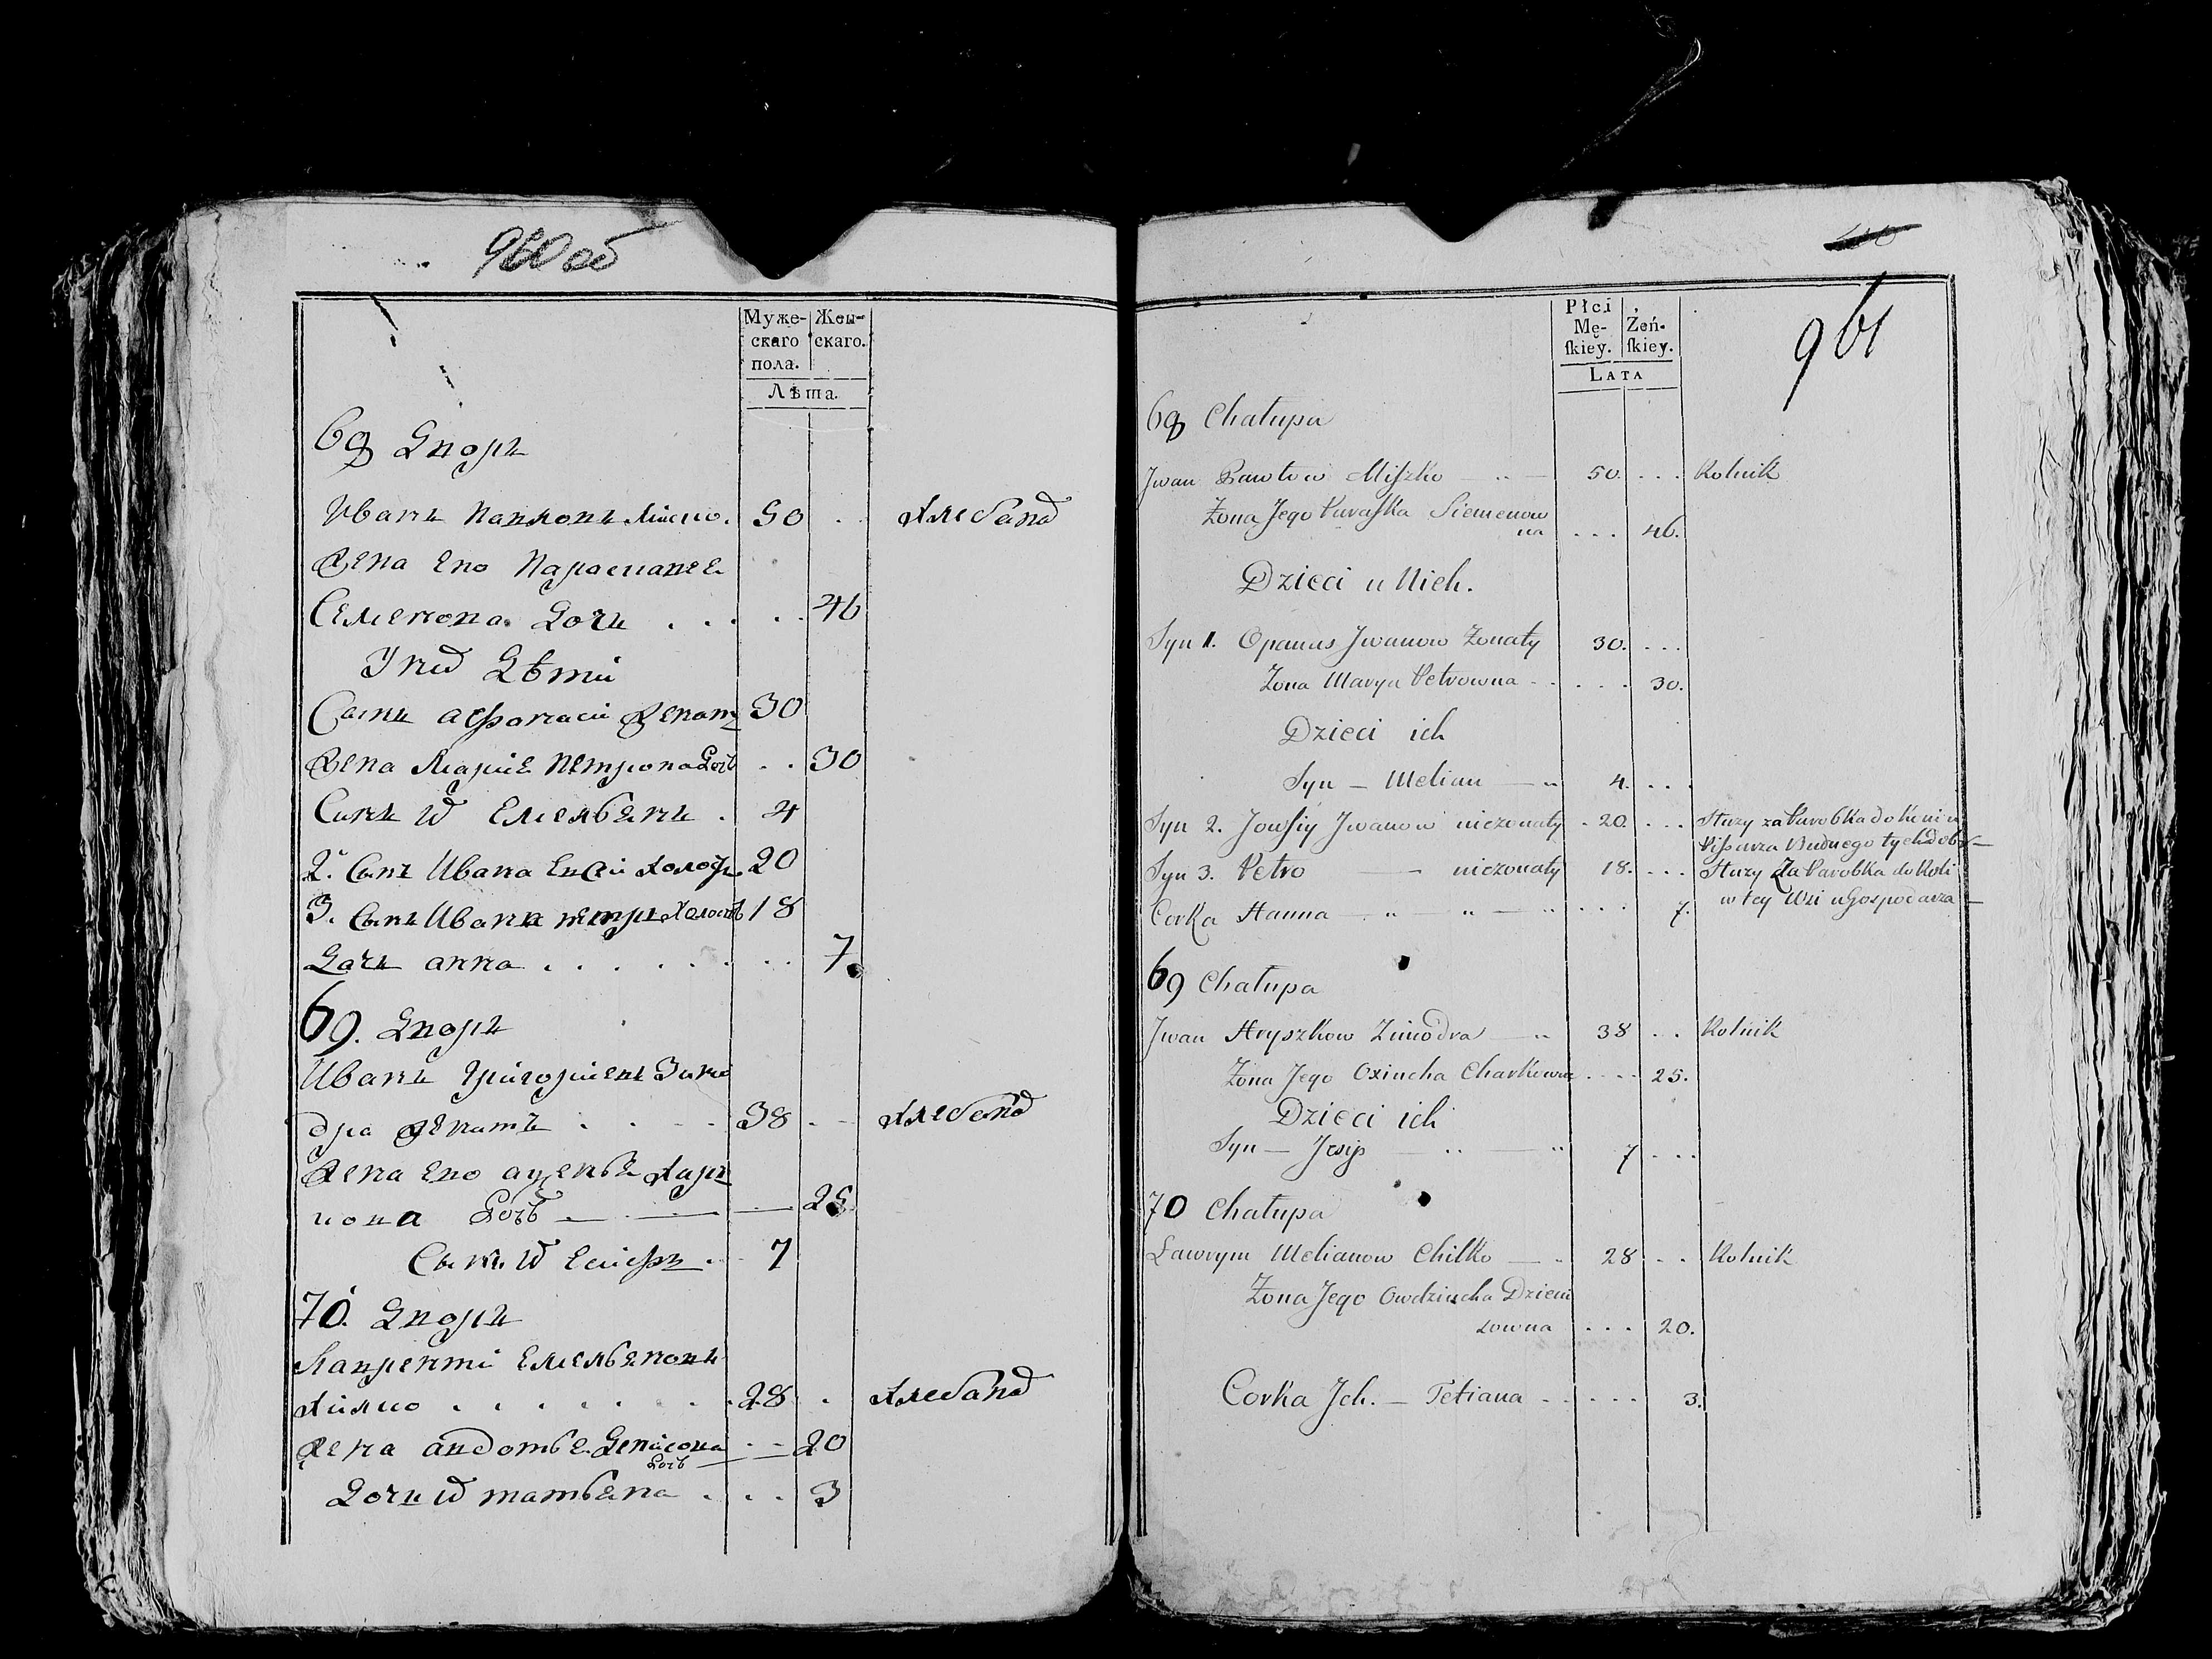 960 об
Муже-
скаго
пола.
Жен-
скаго.
Лѣта.
68 Дворъ
Иванъ Павловъ Мишко. 50 . . Хлебопа
Жена Его Параскавея
Семенова Дочь . . . . . 46
У них Дѣти
Сынъ афанасий женатъ 30
Жена Мария Петрова дочь . . 30
Сынъ их Емельянъ . 4
2. Сынъ Ивана Евсей холостъ 20
3. Сынъ Ивана петръ Холостъ 18
Дочь анна . . . . . . . . 7
69. Дворъ
Иванъ Григориевъ Зимо
дра женатъ . . . . 38 . . Хлебопа
Жена Его аксенья Хари
кова Дочь — — — 25
Сынъ их Есифъ . 7
70. Дворъ
Лаврентий Емельяновъ
Хилко . . . . . . . 28 . Хлебопа
Жена авдотья Денисова . . 20
дочь
Дочь их татьяна . . . 3
961
Płci
Mę-
ſkiey.
Żeń-
ſkiey.
LATA
68 Chałupa
Jwan Pawłow Miſzko — 50. . . . Rolnik
Żona Jego Paraſka Siemenow
na . . . 46.
Dzieci u Nich.
Syn 1. Opanas Jwanow Żonaty 30. . . .
Żona Marya Petrowna . . . . . 30.
Dzieci ich
Syn — Melian — 4. . . .
Syn 2. Jowſiy Jwanow nieżonaty . 20. . . . Służy za Parobka do Koni u
Piſarza Budnego tych dobr —
Syn 3. Petro — nieżonaty 18. . . . Służy Za Parobka do Roli
w tey Wsi u Gospodarza —
Corka Hanna . . . . 7.
69 Chałupa
Jwan Hryszkow Zimodra — 38 . . Rolnik
Żona Jego Oxincha Charkowna . . . . 25.
Dzieci ich
Syn — Jesip — 7 . . .
70 Chałupa
Ławrym Melianow Chilko — . 28 . . Rolnik
Żona Jego Owdziucha Dzieni
sowna . . . 20.
Corka Jch. — Tetiana . . . . . . 3.